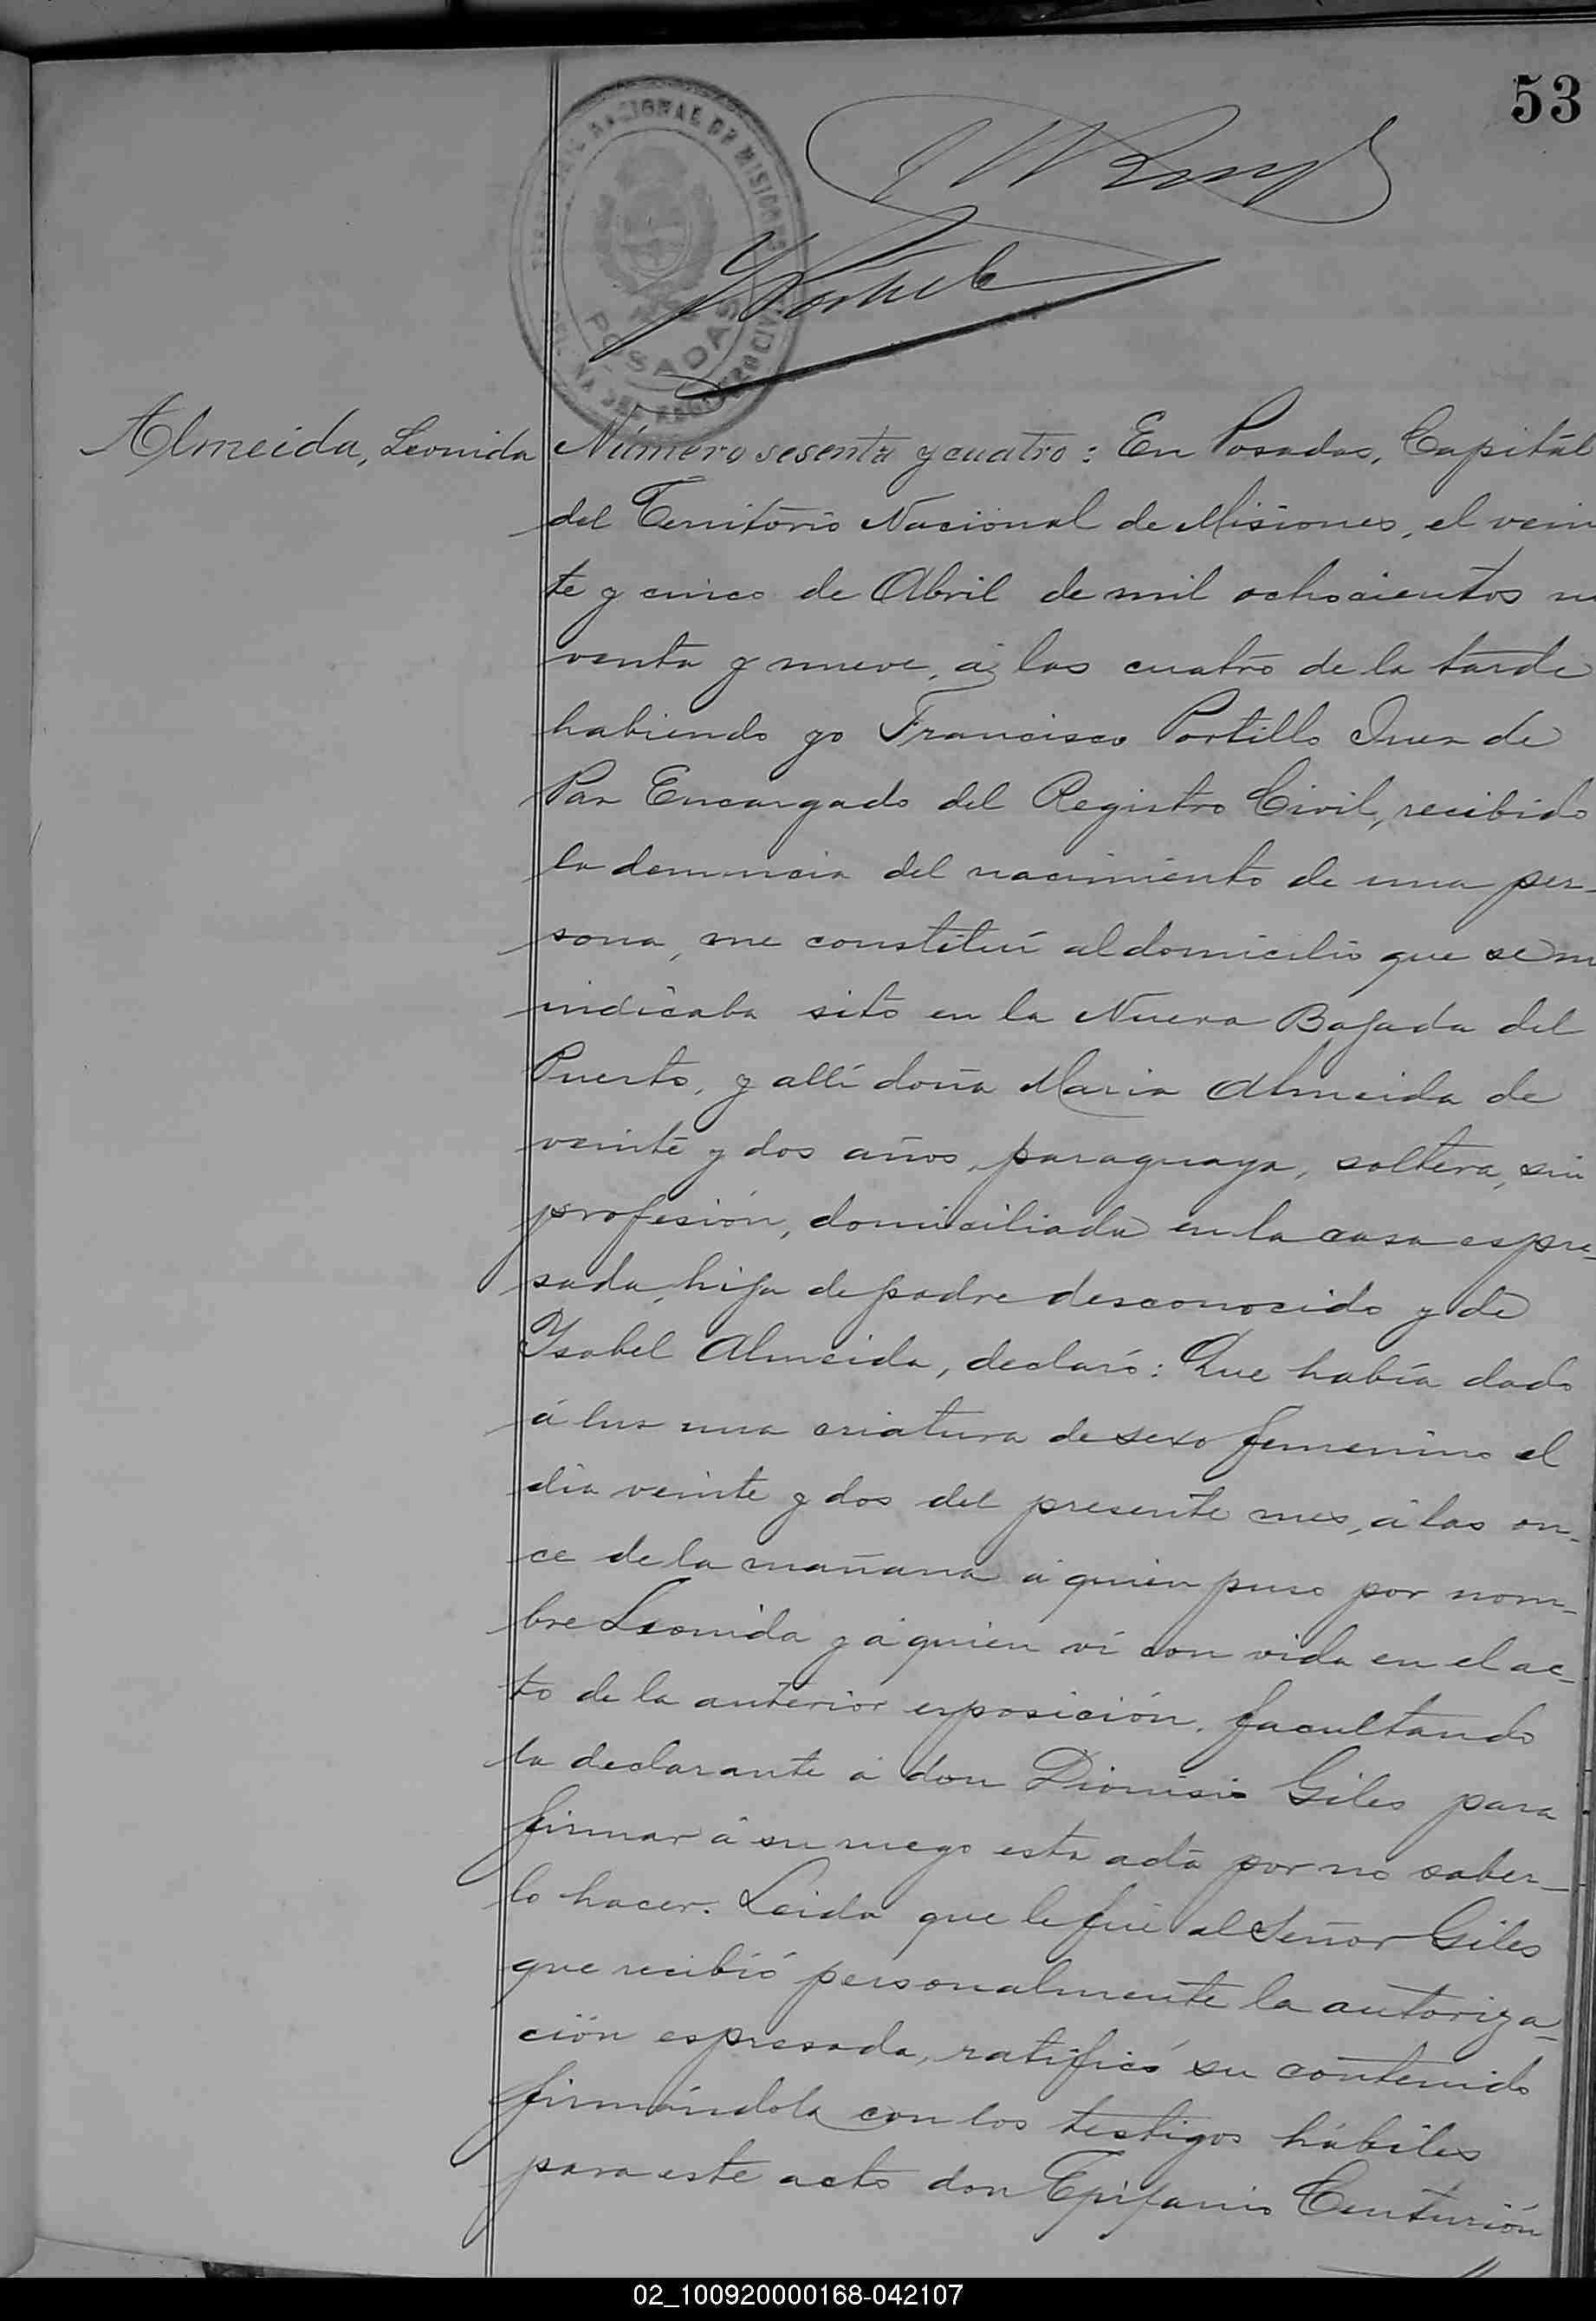 53
NACIONAL DE MISIONES
POSADAS
Almeida, Leonida
Número sesenta y cuatro: En Posadas, Capital
del Territorio Nacional de Misiones, el vein
te y cinco de Abril de mil ochocientos no
venta y nueve, á las cuatro de la tarde
habiendo yo Francisco Portillo Juez de
Paz Encargado del Registro Civil, recibido
la denuncia del nacimiento de una per-
sona, me constituí al domicilio que se m
indicaba sito en la Nueva Bajada del
Puerto, y allí doña Maria Almeida de
veinte y dos años, paraguaya, soltera, sin
profesión, domiciliada en la casa espre-
sada, hija de padre desconocido y de
Ysabel Almeida, declaró: Que había dado
á luz una criatura de sexo femenino el
dia veinte y dos del presente mes, á las on-
ce de la mañana á quien puso por nom-
bre Leonida y á quien ví con vida en el ac-
to de la anterior esposición, facultando
la declarante á don Dionisio Giles para
firmar á su ruego esta acta por no saber-
lo hacer. Leida que le fué al Señor Giles
que recibió personalmente la autoriza-
ción espresada, ratificó su contenido
firmándola con los testigos hábiles
para este acto don Epifanio Centurión
02_100920000168-042107